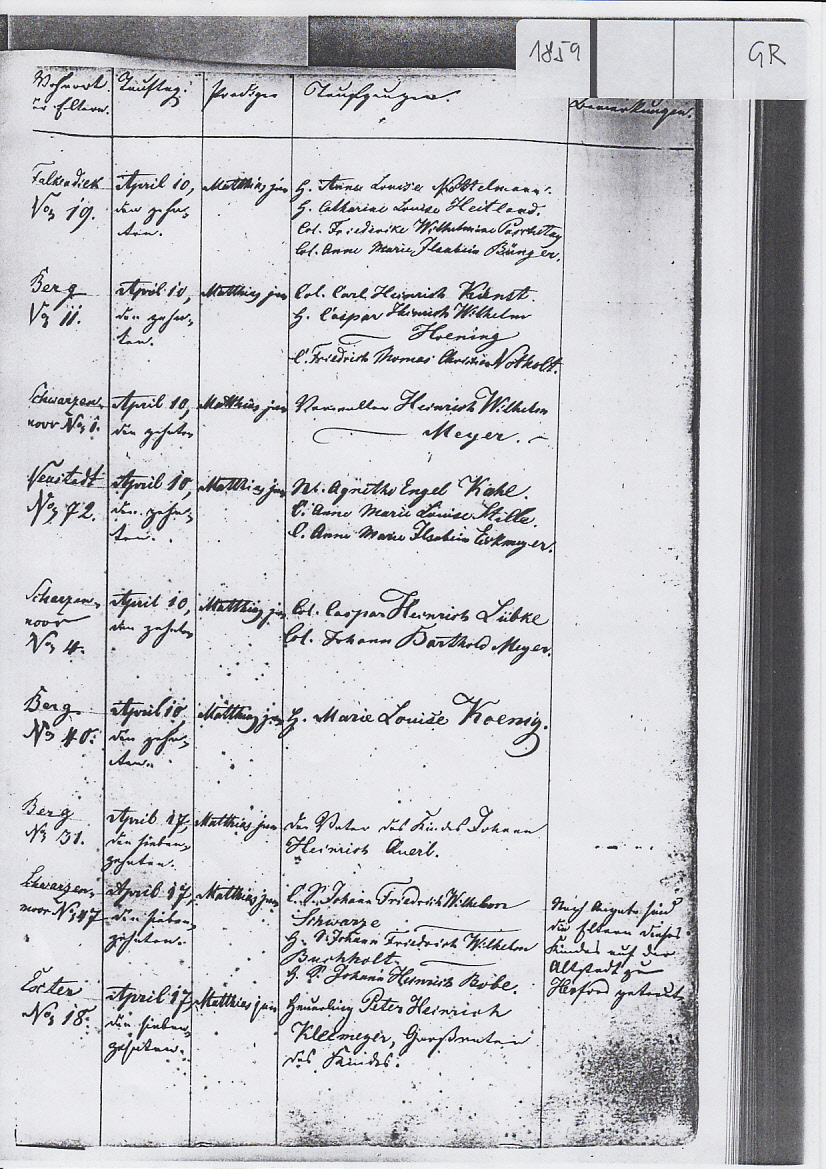 1859
GR
Wohnort
der Eltern.
Tauftag.
Prediger
Taufzeugen.
Bemerkungen.
Falkendiek
No 19.
April 10,
den zehn-
ten.
Matthias jun
H. Anna Louise
H. Catharine Louise Heitland.
Col. Friederike Wilhelmine
Col. Anne Marie Ilsabein Bünger.
Berg
No 11.
April 10,
den zehn-
ten.
Matthias jun
Col. Carl Heinrich Kunst.
H. Caspar Heinrich Wilhelm
Hoening
C. Friedrich Thomas Christian Notholt.
Schwarzen-
moor No 1.
April 10,
den zehnten
Matthias jun
Verwalter Heinrich Wilhelm
Meyer.
Neustadt
No 72.
April 10,
den zehn-
ten.
Matthias jun
Agnethe Engel Kahl.
C. Anne Marie Louise Stille
C. Anne Marie Ilsabein Eckmeyer.
Schwarzen-
moor
No 4.
April 10,
den zehnten
Matthias jun
Col. Caspar Heinrich Lübke
Col. Johann Barthold Meyer.
Berg
No 40.
April 10,
den zehn-
ten.
Matthias jun
H. Marie Louise Koenig.
Berg
No 31.
April 17,
den sieben-
zehnten.
Matthias jun
Der Vater des Kindes Johann
Heinrich
Schwarzen-
moor No 47
April 17,
den sieben-
zehnten.
Matthias jun
C. S. Johann Friedrich Wilhelm
Schwarze
H. S. Johann Friedrich Wilhelm
Buchholt.
H. S. Johann Heinrich Böbe.
Nach Angabe sind
die Eltern dieses
Kindes auf der
Altstadt zu
Herford getraut
Exter
No 18.
April 17,
den sieben-
zehnten.
Matthias jun
Heuerling Peter Heinrich
Kleemeyer, Großvater
des Kindes.